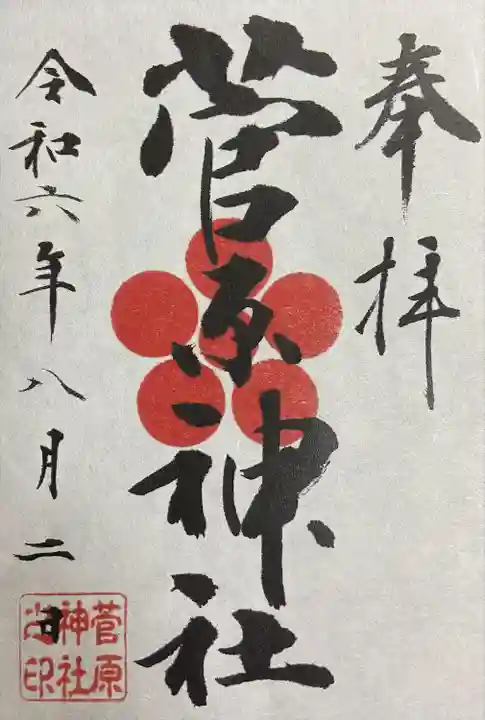 奉拝
菅原神社
令和六年八月二日
菅原
神社
之印